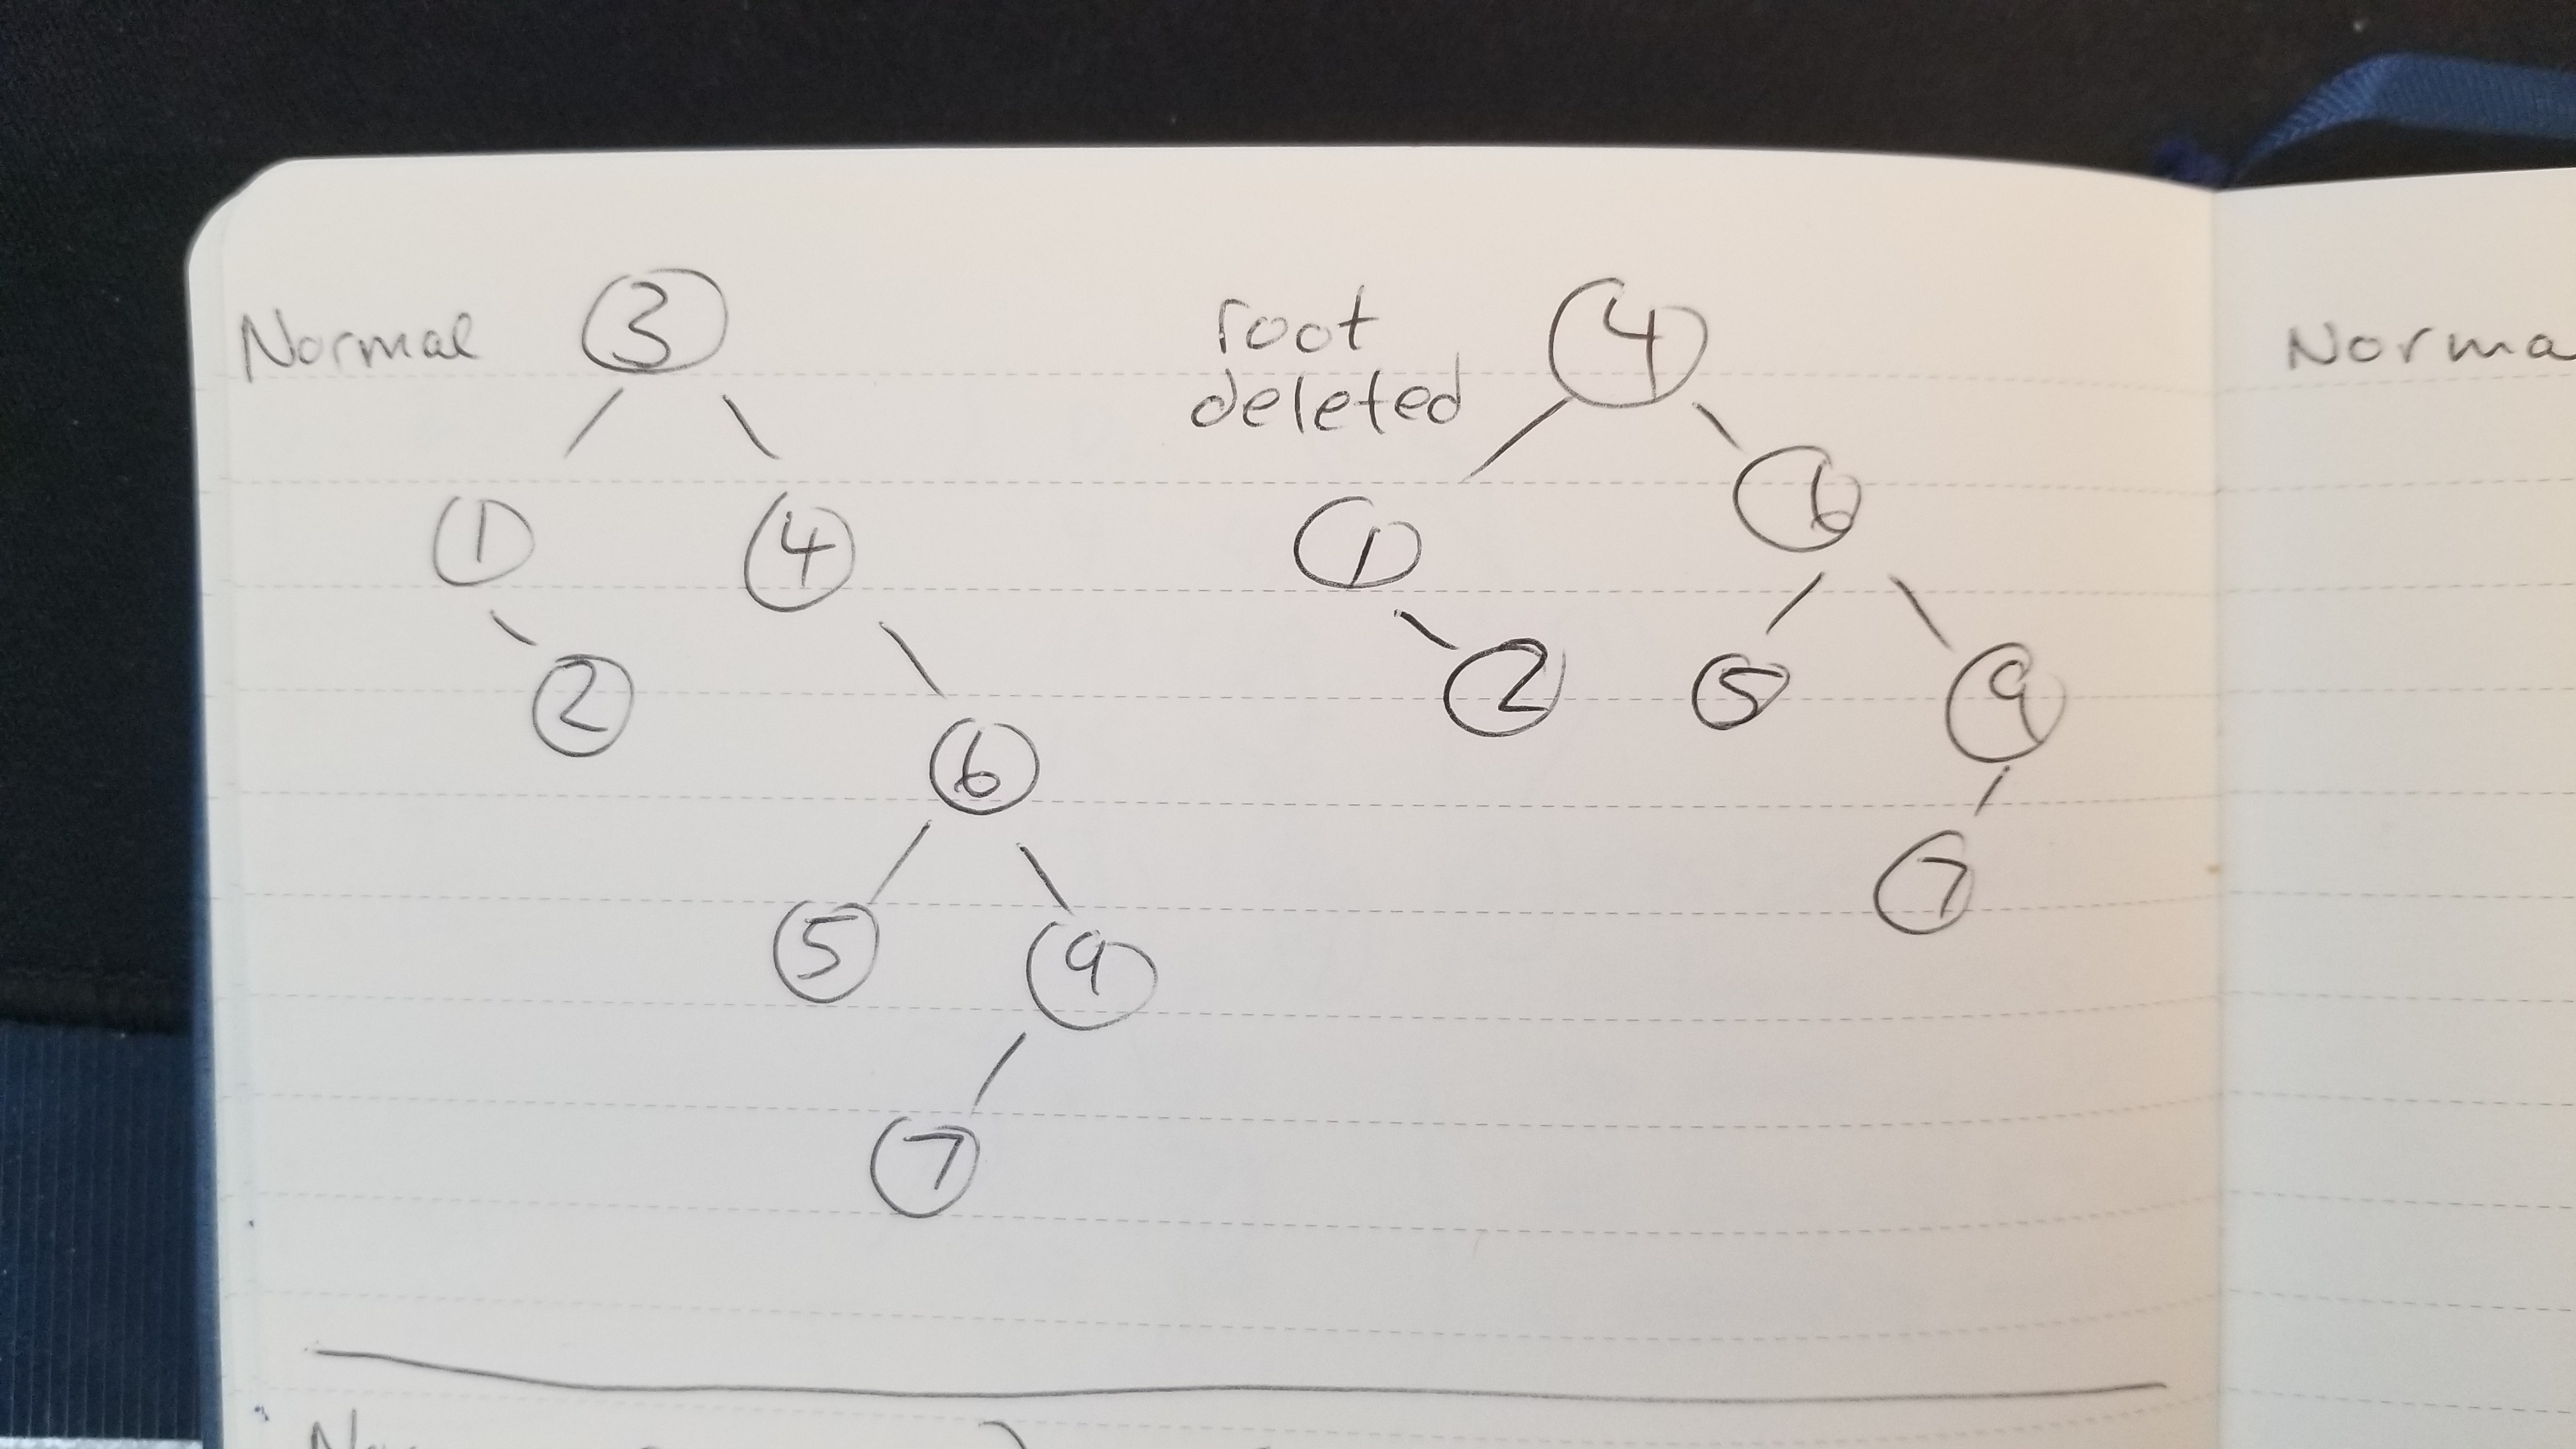 Normal
3
1
4
2
6
5
9
7
root
deleted
4
1
6
2
5
9
7
Norma